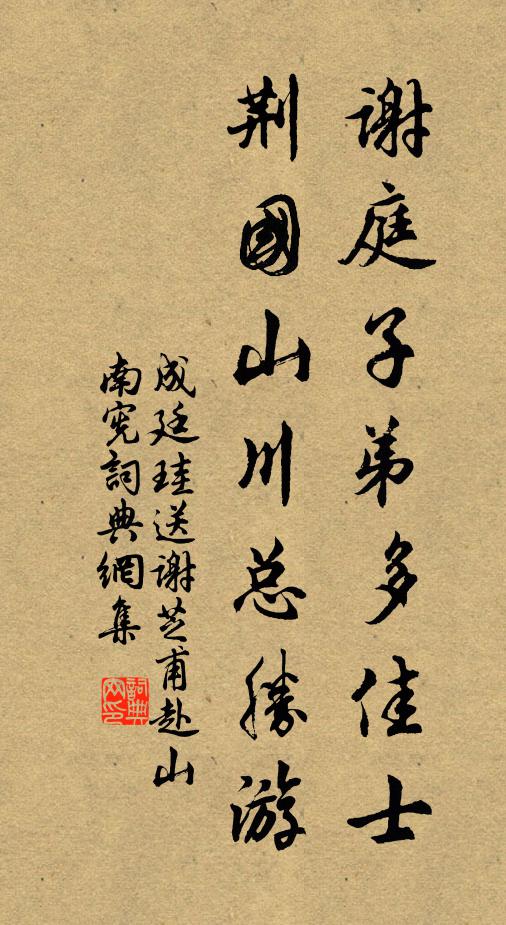 謝庭子弟多佳士
荆國山川总勝游
成廷珪送谢芝甫赴山
南宪詞典網集
詞典
网印